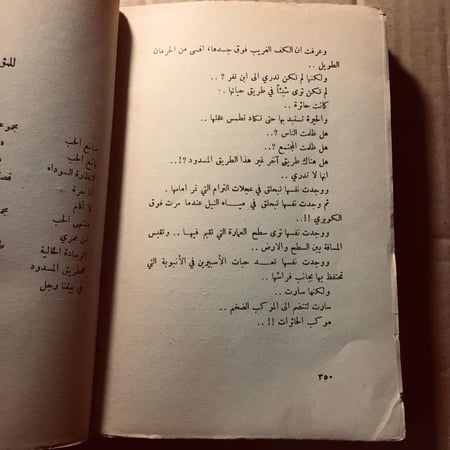 وعرفت ان الكف الغريب فوق جسدها، اقسى من الحرمان
الطويل ..
ولكنها لم تكن تدري الى اين تفر ؟ ..
لم تكن ترى شيئاً في طريق حياتها ..
كانت حائرة ..
والحيرة تستبد بها حتى تكاد تطمس عقلها ..
هل ظلمت الناس ؟ ..
هل ظلمت المجتمع ؟ ..
هل هناك طريق آخر غير هذا الطريق المسدود ؟! ..
انها لا تدري ..
ووجدت نفسها تبحلق في عجلات الترام التي تمر امامها .
ثم وجدت نفسها تبحلق في ميـاه النيل عندما مرت فوق
الكوبري !! ..
ووجدت نفسها ترى سطح العمارة التي تقيم فيهـا .. وتقيس
المسافة بين السطح والارض ..
ووجدت نفسها تعـد حبات الأسبرين في الأنبوبة التي
تحتفظ بها بجانب فراشها ..
ولكنها سارت ..
سارت لتنضم الى الموكب الضخم ..
موكب الحائرات !! ..
٣٥٠
صانع الحب
بائع الحب
النظارة السوداء
أنا حرة
لا أنام
منتهى الحب
الوسادة الخالية
الطريق المسدود
في بيتنا رجل